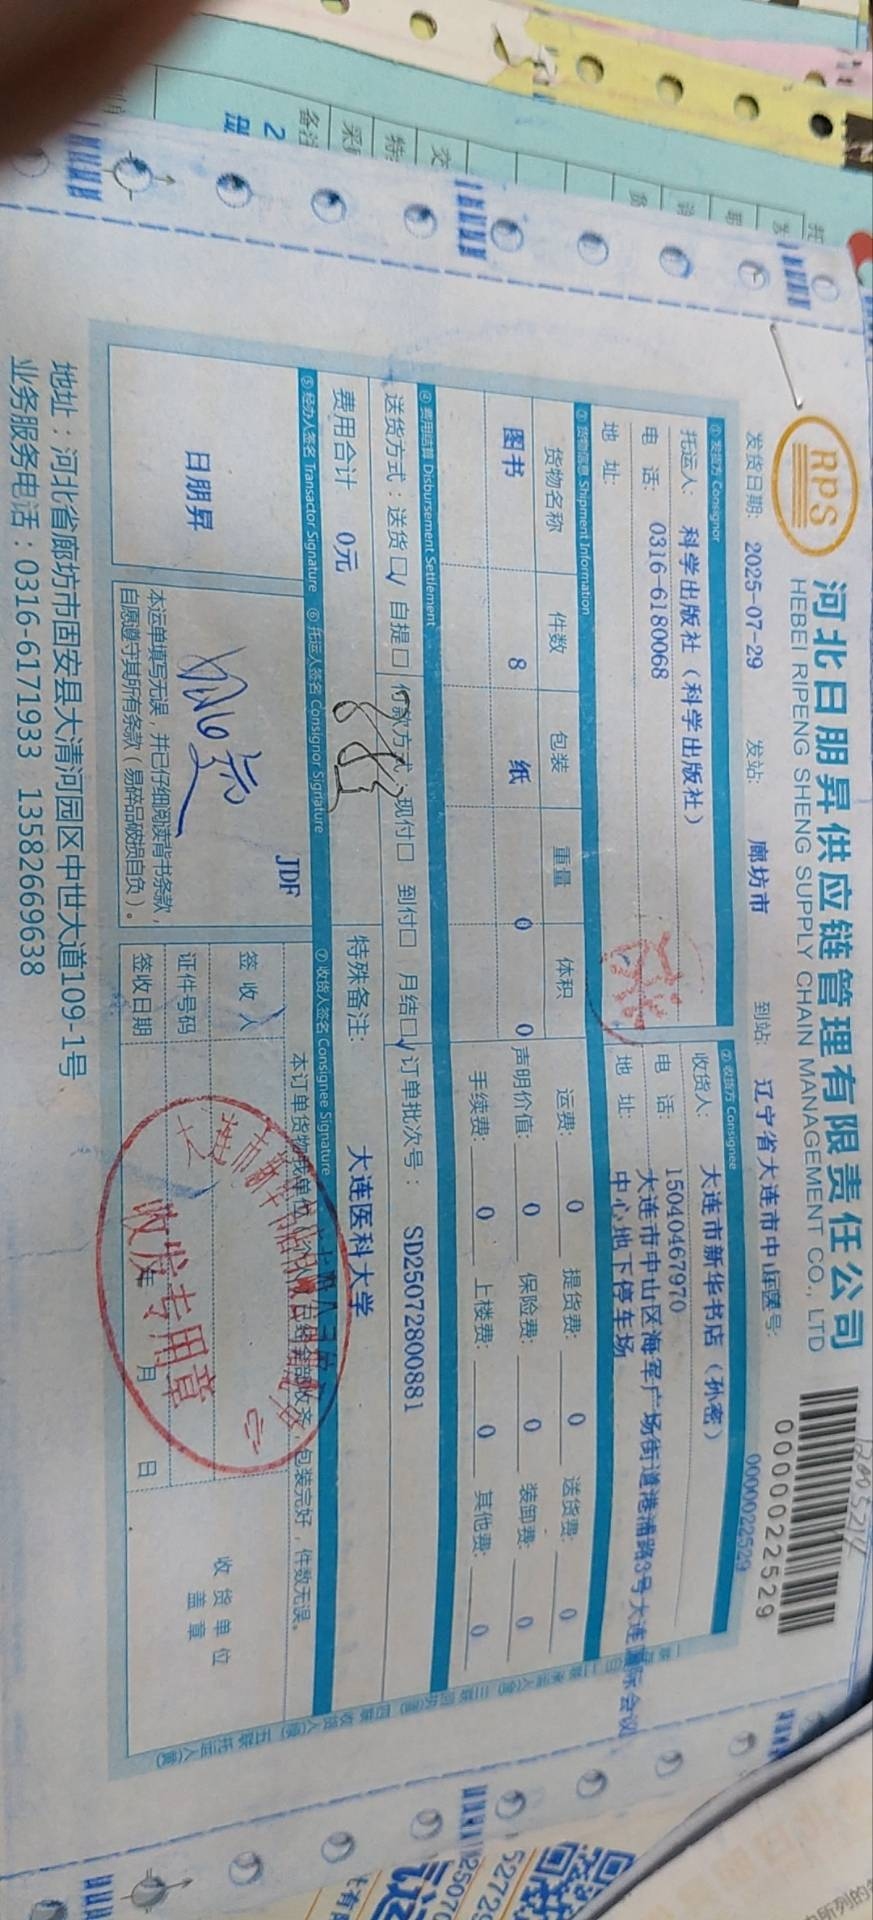 RPS
河北日朋昇供应链管理有限责任公司
HEBEI RIPENG SHENG SUPPLY CHAIN MANAGEMENT CO., LTD
0000022529
发货日期: 2025-07-29 发站: 廊坊市 到站: 辽宁省大连市中山区 号: 0000022529
① 发货方 Consignor
托运人: 科学出版社（科学出版社）
电 话: 0316-6180068
地 址:
② 收货方 Consignee
收货人: 大连市新华书店（孙密）
电 话: 15040467970
地 址: 大连市中山区海军广场街道港浦路3号大连国际会议
中心地下停车场
③ 货物信息 Shipment Information
货物名称 件数 包装 重量 体积
图书 8 纸 0 0
运费: 0 提货费: 0 送货费: 0
声明价值: 0 保险费: 0 装卸费: 0
手续费: 0 上楼费: 0 其他费: 0
④ 费用结算 Disbursement Settlement
送货方式：送货☑ 自提□ 付款方式：现付□ 到付□ 月结☑ 订单批次号： SD25072800881
费用合计 0元 特殊备注: 大连医科大学
⑤ 经办人签名 Transactor Signature ⑥ 托运人签名 Consignor Signature ⑦ 收货人签名 Consignee Signature
日朋昇
JDF
本运单填写无误，并已仔细阅读背书条款，
自愿遵守其所有条款（易碎品破损自负）。
包装完好，件数无误。
签 收 人
证件号码
签收日期 年 月 日
收发专用章
收 货 单 位
盖 章
地址：河北省廊坊市固安县大清河园区中世大道109-1号
业务服务电话：0316-6171933 13582669638